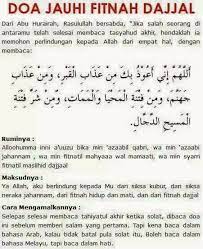 DOA JAUHI FITNAH DAJJAL
Dari Abu Hurairah, Rasulullah bersabda, "Jika salah seorang di
antaramu telah selesai membaca tasyahud akhir, hendaklah ia
memohon perlindungan kepada Allah dari empat hal, dengan
membaca:
اللَّهُمَّ إِنِّي أَعُوْذُ بِكَ مِنْ عَذَابِ الْقَبْرِ، وَمِنْ عَذَابِ
جَهَنَّمَ، وَمِنْ فِتْنَةِ الْمَحْيَا وَالْمَمَاتِ، وَمِنْ شَرِّ فِتْنَةِ
الْمَسِيْحِ الدَّجَّالِ.
Ruminya :
Alloohumma inni a'uuzu bika min 'azaabil qabri, wa min 'azaabi
jahannam , wa min fitnatil mahyaaya wal mamaati, wa min syarri
fitnatil masiihid dajjaal
Maksudnya :
Ya Allah, aku berlindung kepada Mu dari siksa kubur, dan siksa
neraka jahannam, dari fitnah hidup dan mati, dan dari fitnah dajjal.
Cara Mengamalkannya :
Selepas selesai membaca tahiyatul akhir ketika solat, dibaca doa
ini sebelum memberi salam yang pertama. Tapi kena baca dalam
bahasa Arab, kalau tidak batal pula solat tu. Kalau nak baca dalam
bahasa Melayu, tapi baca dalam hati.